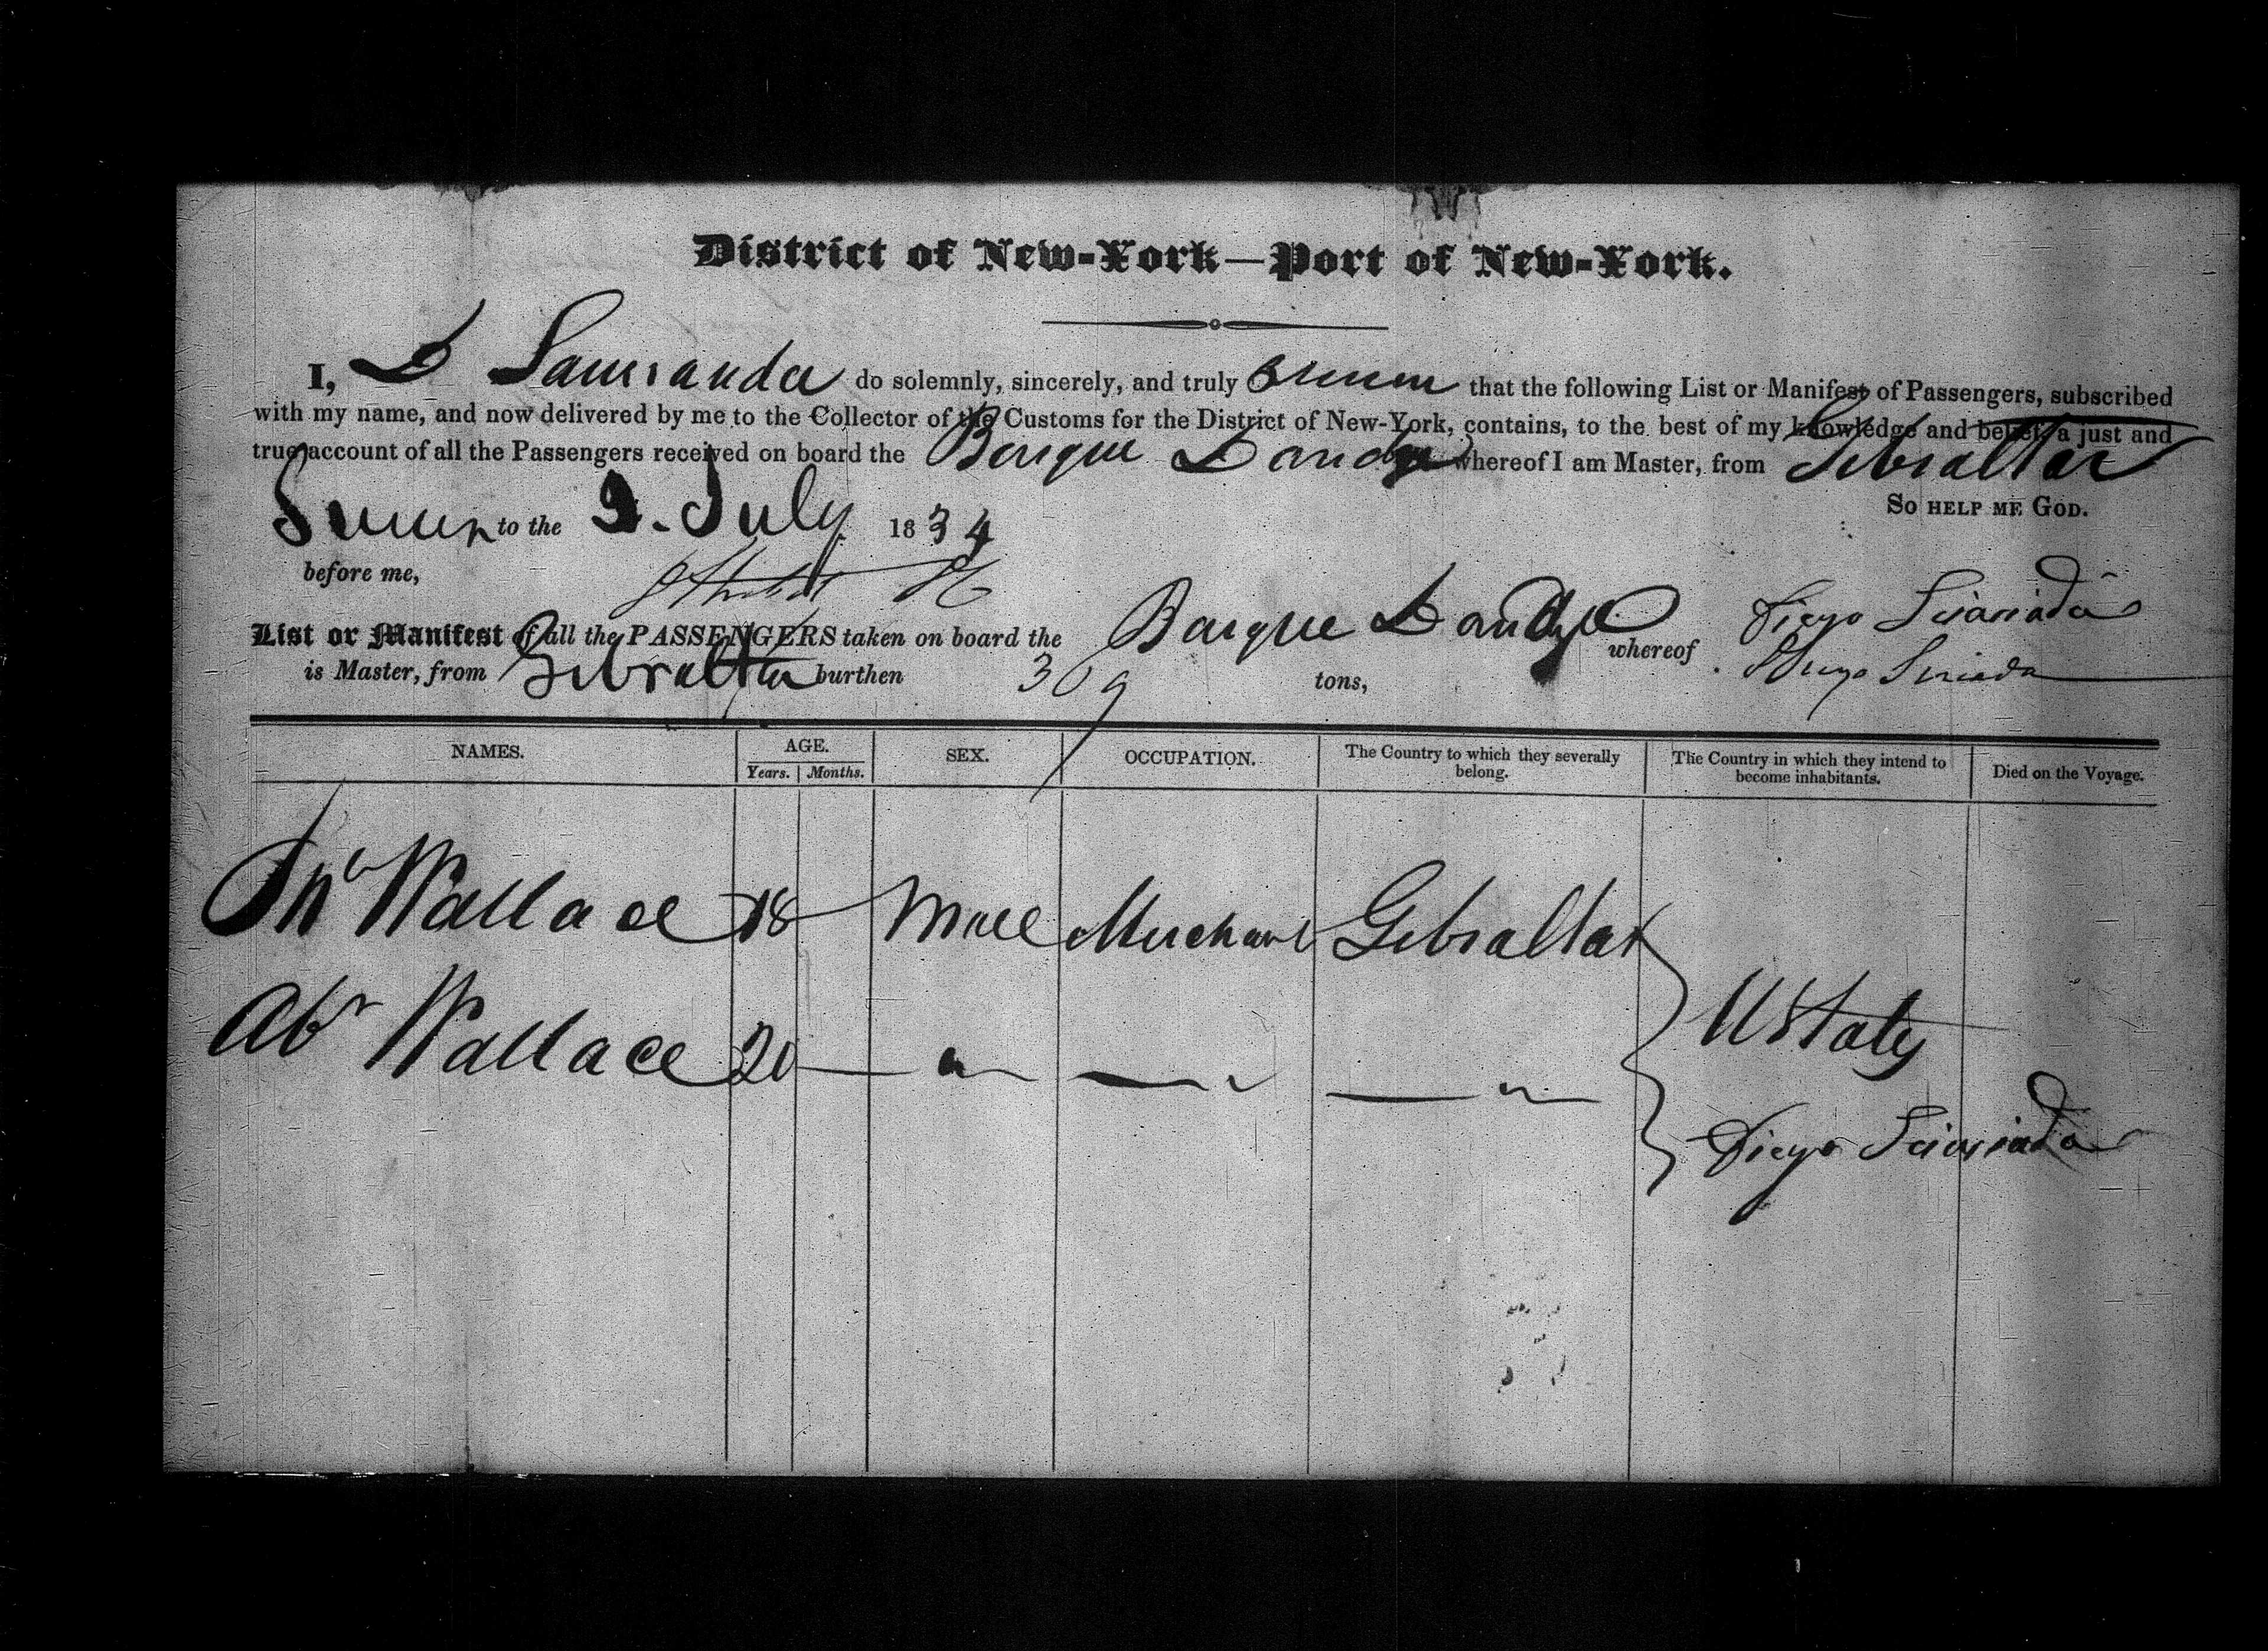 District of New-York—Port of New-York.
I, D do solemnly, sincerely, and truly that the following List or Manifest of Passengers, subscribed
with my name, and now delivered by me to the Collector of the Customs for the District of New-York, contains, to the best of my knowledge and belief, a just and
true account of all the Passengers received on board the Barque Dandy whereof I am Master, from Gibraltar
So HELP ME GOD.
Sworn to the July 1834
before me,
List or Manifest of all the PASSENGERS taken on board the Barque Dandy whereof Diego
is Master, from Gibraltar burthen 309 tons,
NAMES. AGE. SEX. OCCUPATION. The Country to which they severally belong. The Country in which they intend to become inhabitants. Died on the Voyage.
Years. Months.
Wallace 18 Male Merchant Gibraltar
Abr Wallace 20
U States
Diego